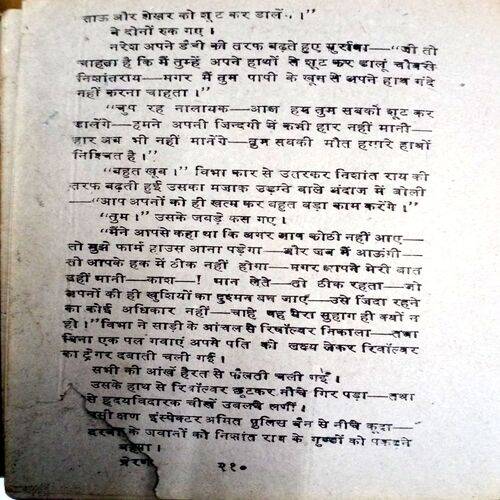 ताऊ और शेखर को शूट कर डालें ।"
वे दोनों रुक गए ।
नरेश अपने डैनी की तरफ बढ़ते हुए गुर्राया—"जी तो
चाहता है कि मैं तुम्हें अपने हाथों से शूट कर डालूं चौबसे
निशांतराय—मगर मैं तुम पापी के खून से अपने हाथ गंदे
नहीं करना चाहता ।"
"चुप रह नालायक—आज हम तुम सबको शूट कर
डालेंगे—हमने अपनी जिन्दगी में कभी हार नहीं मानी—
हार अब भी नहीं मानेंगे—तुम सबकी मौत हमारे हाथों
निश्चित है ।"
"बहुत खूब ।" विभा कार से उतरकर निशांत राय की
तरफ बढ़ती हुई उसका मजाक उड़ाने वाले अंदाज में बोली
—"आप अपनों को ही खत्म कर बहुत बड़ा काम करेंगे ।"
"तुम ।" उसके जबड़े कस गए ।
"मैंने आपसे कहा था कि अगर आप कोठी नहीं आए—
तो मुझे फार्म हाउस आना पड़ेगा—और जब मैं आऊंगी—
तो आपके हक में ठीक नहीं होगा—मगर आपने मेरी बात
नहीं मानी—काश—! मान लेते—तो ठीक रहता—जो
अपनों की ही खुशियों का दुश्मन बन जाएं—उसे जिंदा रहने
का कोई अधिकार नहीं—चाहे वह मेरा सुहाग ही क्यों न
हो ।" विभा ने साड़ी के आंचल से रिवॉल्वर निकाला—तथा
बिना एक पल गवांए अपने पति को लक्ष्य लेकर रिवॉल्वर
का ट्रेगर दबाती चली गई ।
सभी की आंखें हैरत से फैलती चली गईं ।
उसके हाथ से रिवॉल्वर छूटकर नीचे गिर पड़ा—तथा
से हृदयविदारक चीखें उबलने लगीं ।
उसी क्षण इंस्पेक्टर अमित पुलिस वैन से नीचे कूदा—
के जवानों को निशांत राय के गुण्डों को पकड़ने
२१०